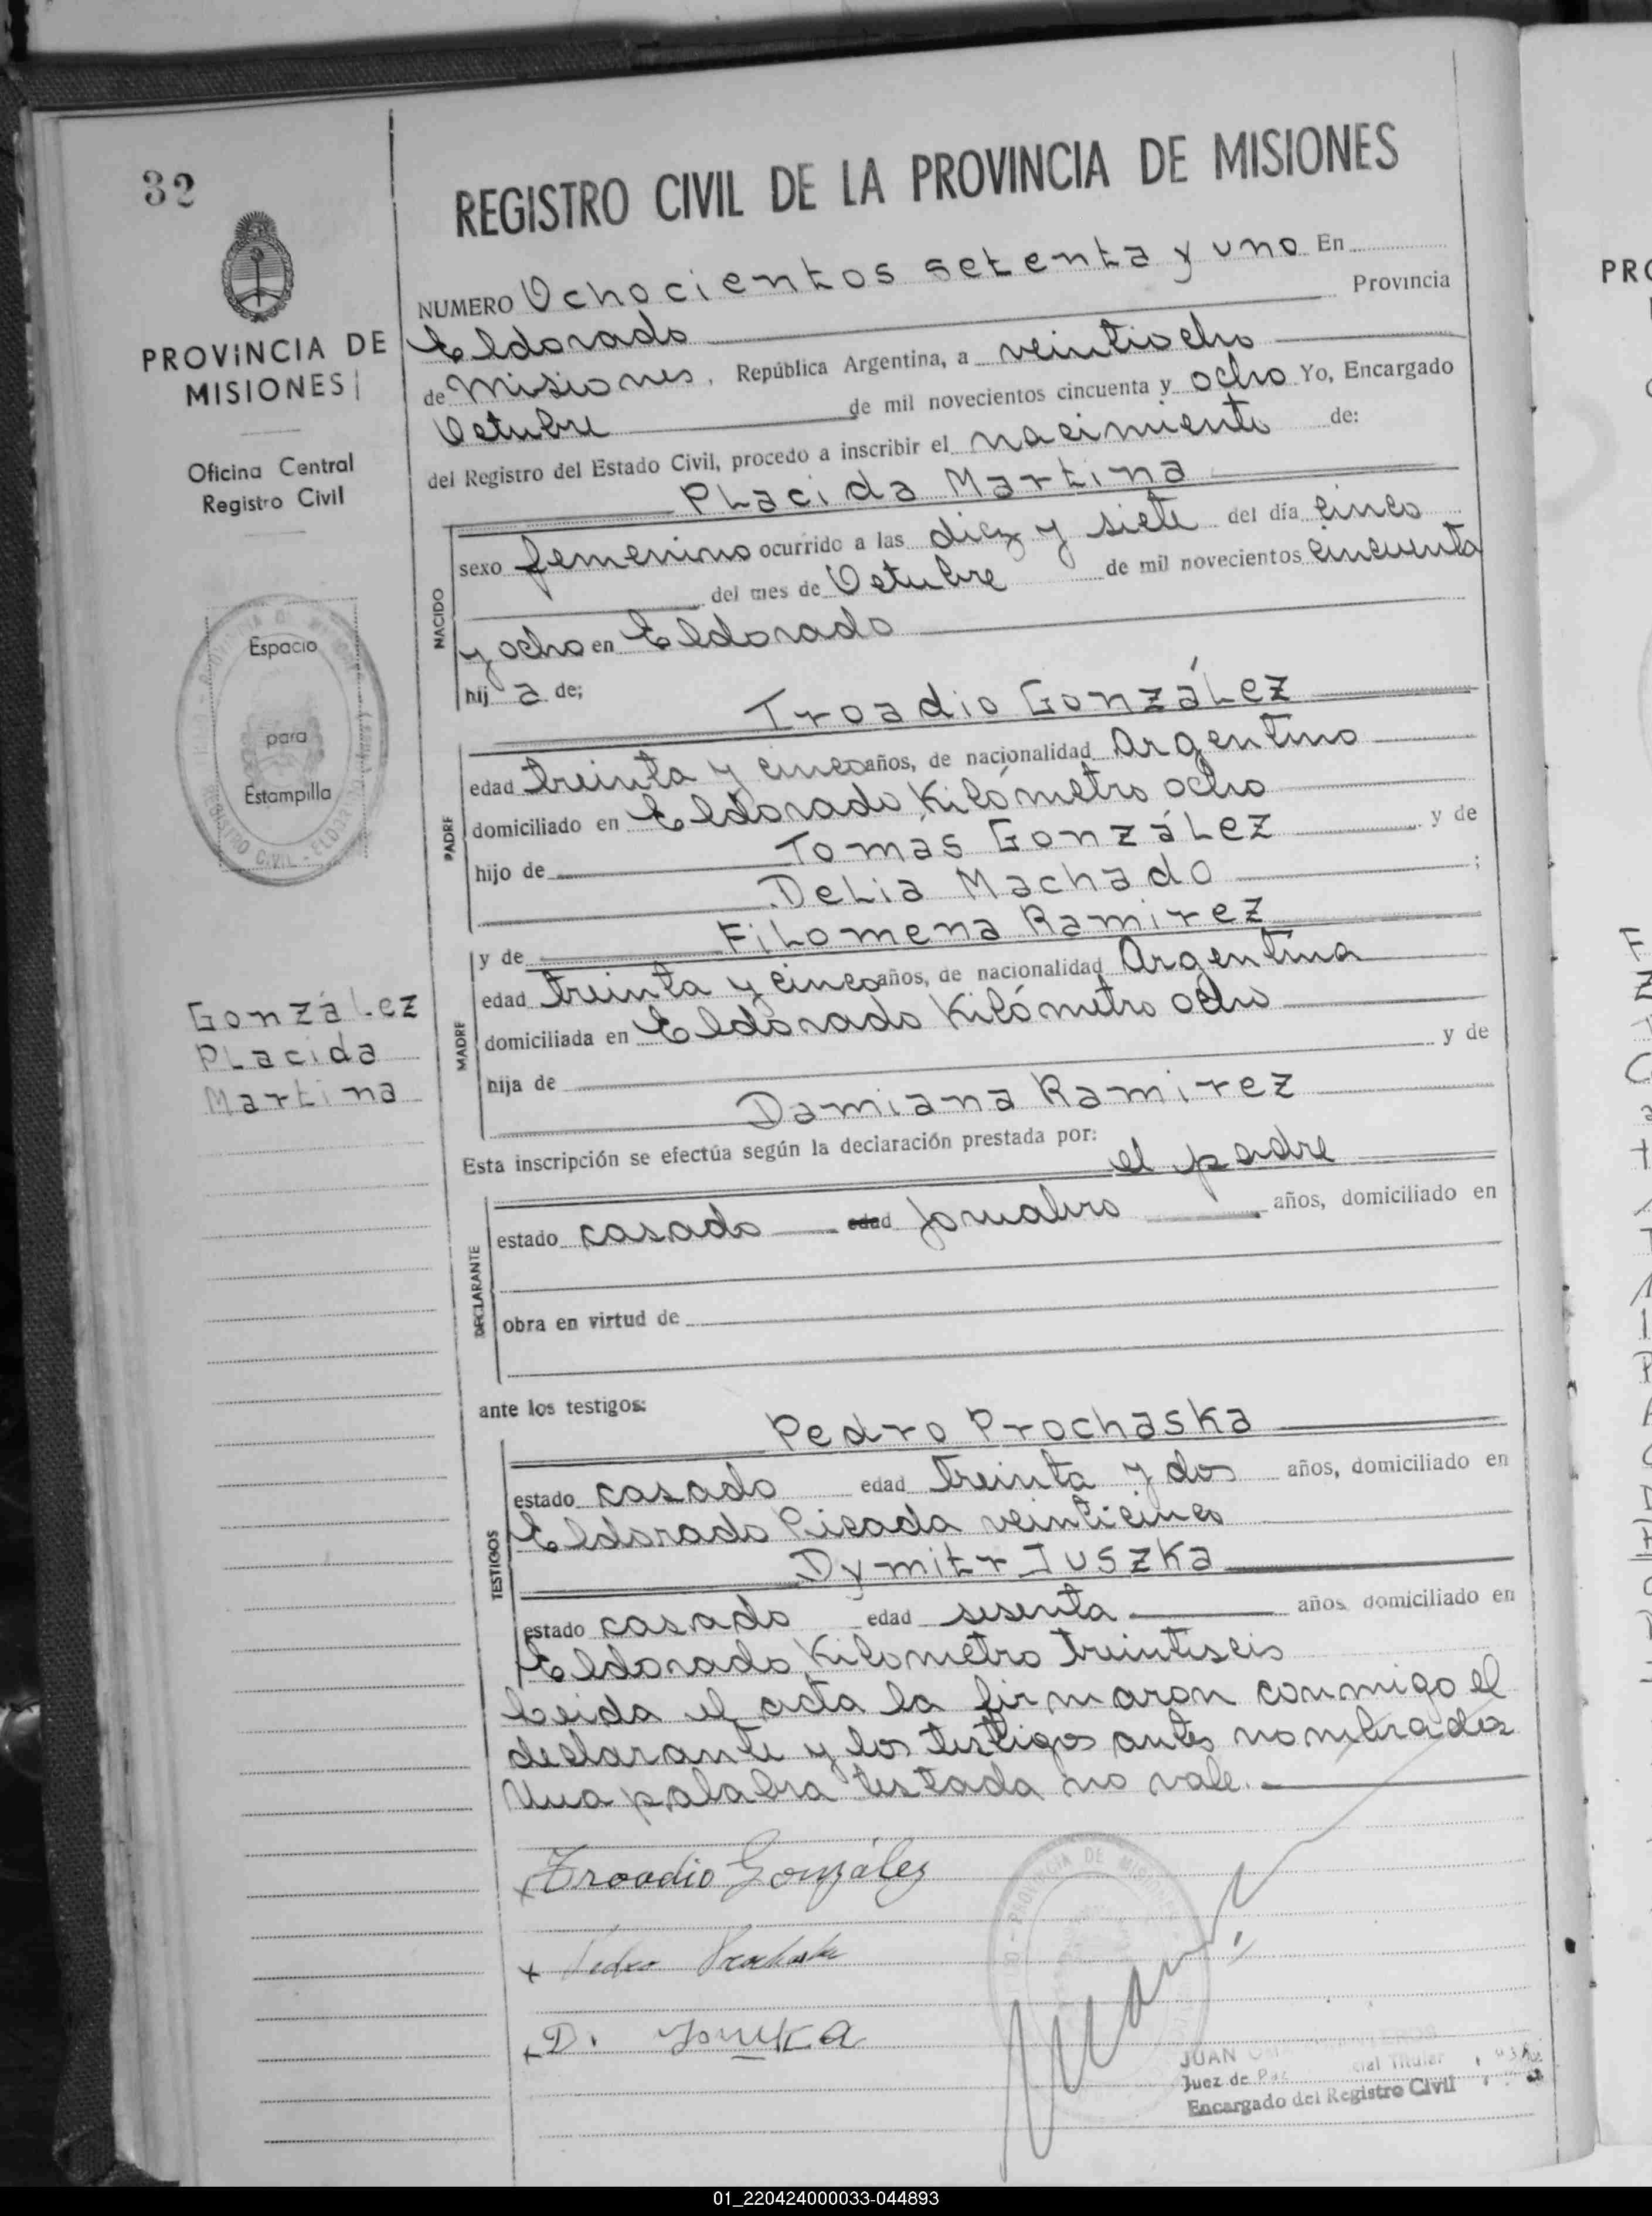 32
PROVINCIA DE
MISIONES
Oficina Central
Registro Civil
Espacio
para
Estampilla
González
Placida
Martina
REGISTRO CIVIL DE LA PROVINCIA DE MISIONES
NUMERO Ochocientos setenta y uno En
Eldorado Provincia
de Misiones, República Argentina, a veintiocho
Octubre de mil novecientos cincuenta y ocho Yo, Encargado
del Registro del Estado Civil, procedo a inscribir el nacimiento de:
Placida Martina
NACIDO
sexo femenino ocurrido a las diez y siete del día cinco
del mes de Octubre de mil novecientos cincuenta
y ocho en Eldorado
hij a de;
Troadio González
PADRE
edad treinta y cinco años, de nacionalidad Argentino
domiciliado en Eldorado, Kilómetro ocho
hijo de Tomás González y de
Delia Machado ;
y de Filomena Ramirez
MADRE
edad treinta y cinco años, de nacionalidad Argentina
domiciliada en Eldorado Kilómetro ocho
hija de y de
Damiana Ramirez
Esta inscripción se efectúa según la declaración prestada por:
el padre
DECLARANTE
estado casado edad Jornalero años, domiciliado en
obra en virtud de
ante los testigos:
Pedro Prochaska
TESTIGOS
estado casado edad treinta y dos años, domiciliado en
Eldorado Picada veinticinco
Dymitr Juszka
estado casado edad sesenta años domiciliado en
Eldorado, Kilometro treintiseis
Leida el acta la firmaron conmigo el
declarante y los testigos antes nombrados
Una palabra testada no vale.
x Troadio González
x Pedro Prochaska
x D. Juszka
JUAN
Juez de Paz Titular
Encargado del Registro Civil
PRO
01_220424000033-044893